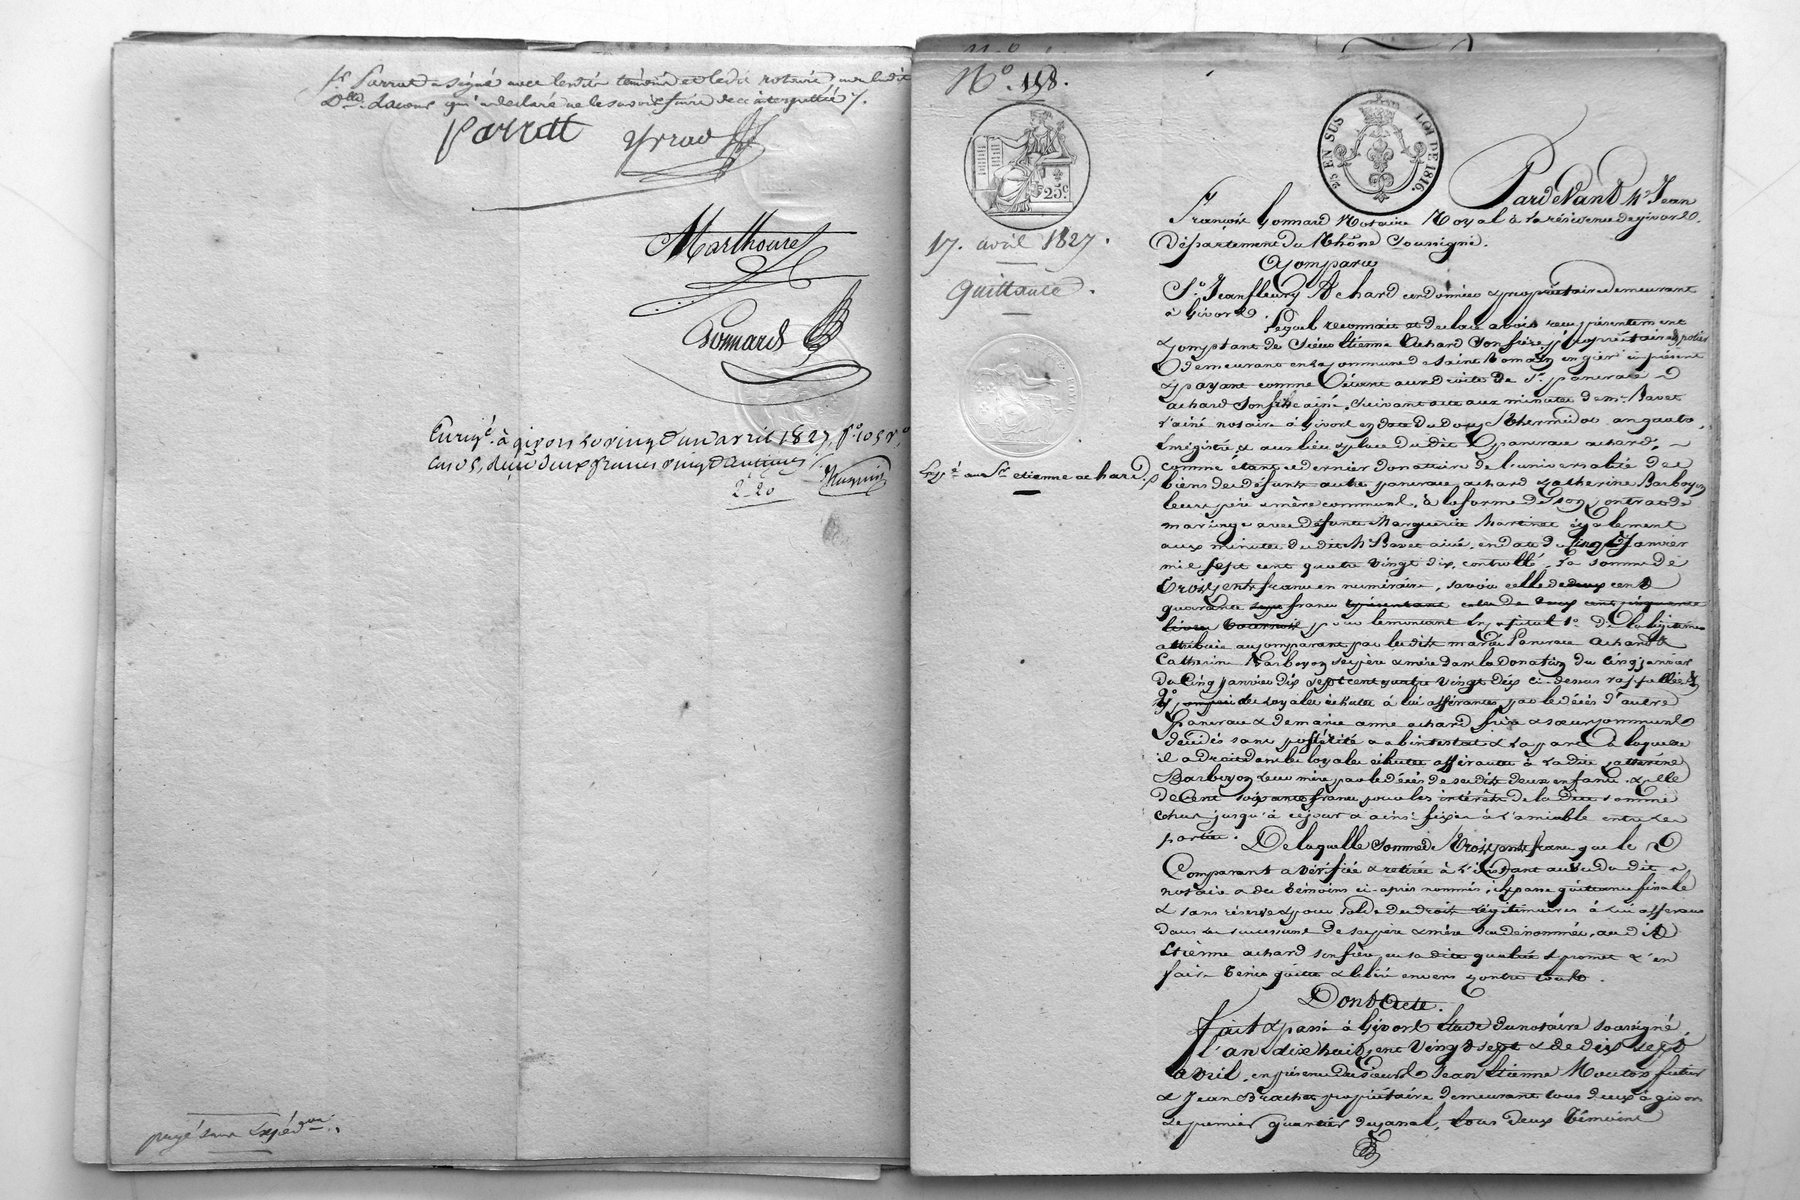 Sr. Parrat a signé avec lesdits témoins et ledit notaire, non ladite
Dlle. qui a déclaré ne le savoir faire de ce interpellée /.
Parrat
Marthouret
Gonnard
Enregé. à givors le vingt un avril 1827, fo. 105 Ro.
Cas 5, Reçu deux francs vingt centimes /.
2-20
payé sans
No. 158.
25c.
25 EN SUS
LOI DE 1816.
17. avril 1827.
Quittance.
au Sr. etienne achard.
Pardevant Me. Jean
François Gonnard Notaire Royal à la résidence de givors,
Département du Rhône Soussigné.
a Comparu
Sr. Jean fleury Achard cordonnier & propriétaire demeurant
à Givors.
Lequel reconnait et déclare avoir reçu présentement
& comptant de Sieur Etienne Achard Son frère, propriétaire
demeurant en la commune de Saint Romain en gier ici présent
& payant comme étant aux droits de Sr. pancrace
achard Son frère ainé, Suivant acte aux minutes de Me. Bavet
l'ainé notaire à Givors en date du douze Thermidor an quatre,
Enrégistré, & au lieu & place du dit pancrace achard,
comme étant ce dernier donataire de l'universalité des
biens des défunts autre pancrace achard & Catherine Barboyon
leurs père & mère communs, à la forme de son contrat de
mariage avec défunte Marguerite Martinat également
aux minutes du dit Me. Bavet ainé, en date du cinq Janvier
mil sept cent quatre vingt dix, controllé, la somme de
Trois cents francs en numéraire, savoir celle de deux cent
quarante francs
livres tournois pour le montant 1o. De la légitime
attribuée au comparant par les dits mariés Pancrace achard &
Catherine Barboyon ses père & mère dans la Donation du cinq janvier
du cinq janvier dix sept cent quatre vingt dix ci-dessus rappellée &
2o. des loyales échutes à lui afférantes par le décès d'autre
Pancrace & de marie anne achard frère & sœur communs
décédés sans postérité & ab intestat & la part à laquelle
il a droit dans les loyales échutes afférante à la dite Catherine
Barboyon leur mère, par le décès de ses dits deux enfants, & celle
de Cent soixante francs pour les intérêts de la dite somme
échus jusqu'à ce jour & ainsi fixés à l'amiable entre les
parties. De laquelle somme de Trois cents francs que le
Comparant a vérifiée & retirée à l'instant au vu du dit
notaire & des témoins ci-après nommés, il passe quittance finale
& sans réserve & pour solde des droits légitimaires à lui afférans
dans les successions de ses père & mère susdénommés, au dit
Etienne achard son frère, en sa dite qualité & promet de l'en
faire tenir quitte & libéré envers & contre tous.
Dont Acte.
Fait & passé à Givors Etude du notaire soussigné
l'an dix huit cent vingt sept & le dix sept
avril, en présence des sieurs Jean Etienne Mouton
& Jean Brachet propriétaire demeurant tous deux à givors
le premier quartier du canal, tous deux témoins